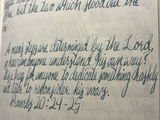 but the two which stood out the
A man's steps are determined by the Lord,
so how can anyone understand his own way?
It is a trap for anyone to dedicate something rashly
and later to reconsider his vows.
Proverbs 20:24-25